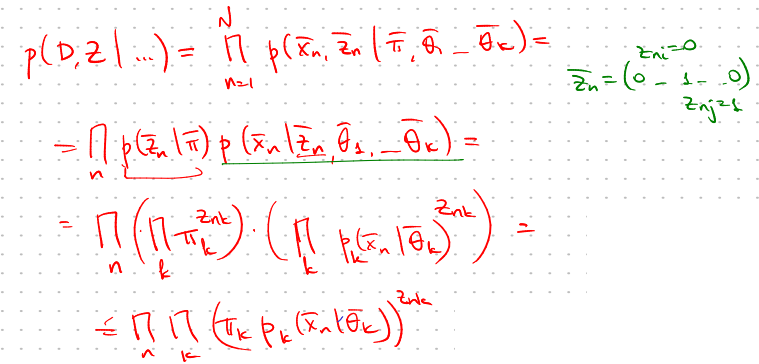 p(D, Z | ...) = ∏_{n=1}^{N} p(x̄_n, z̄_n | π̄, θ̄_1 _ θ̄_k) =
z_{ni}=0
z̄_n = (0 - 1 - .. 0)
z_{nj}=1
= ∏_n p(z̄_n | π̄) p(x̄_n | z̄_n, θ̄_1, _ θ̄_k) =
= ∏_n (∏_k π_k^{z_{nk}}) · (∏_k p_k(x̄_n | θ̄_k)^{z_{nk}}) =
= ∏_n ∏_k (π_k p_k(x̄_n | θ̄_k))^{z_{nk}}